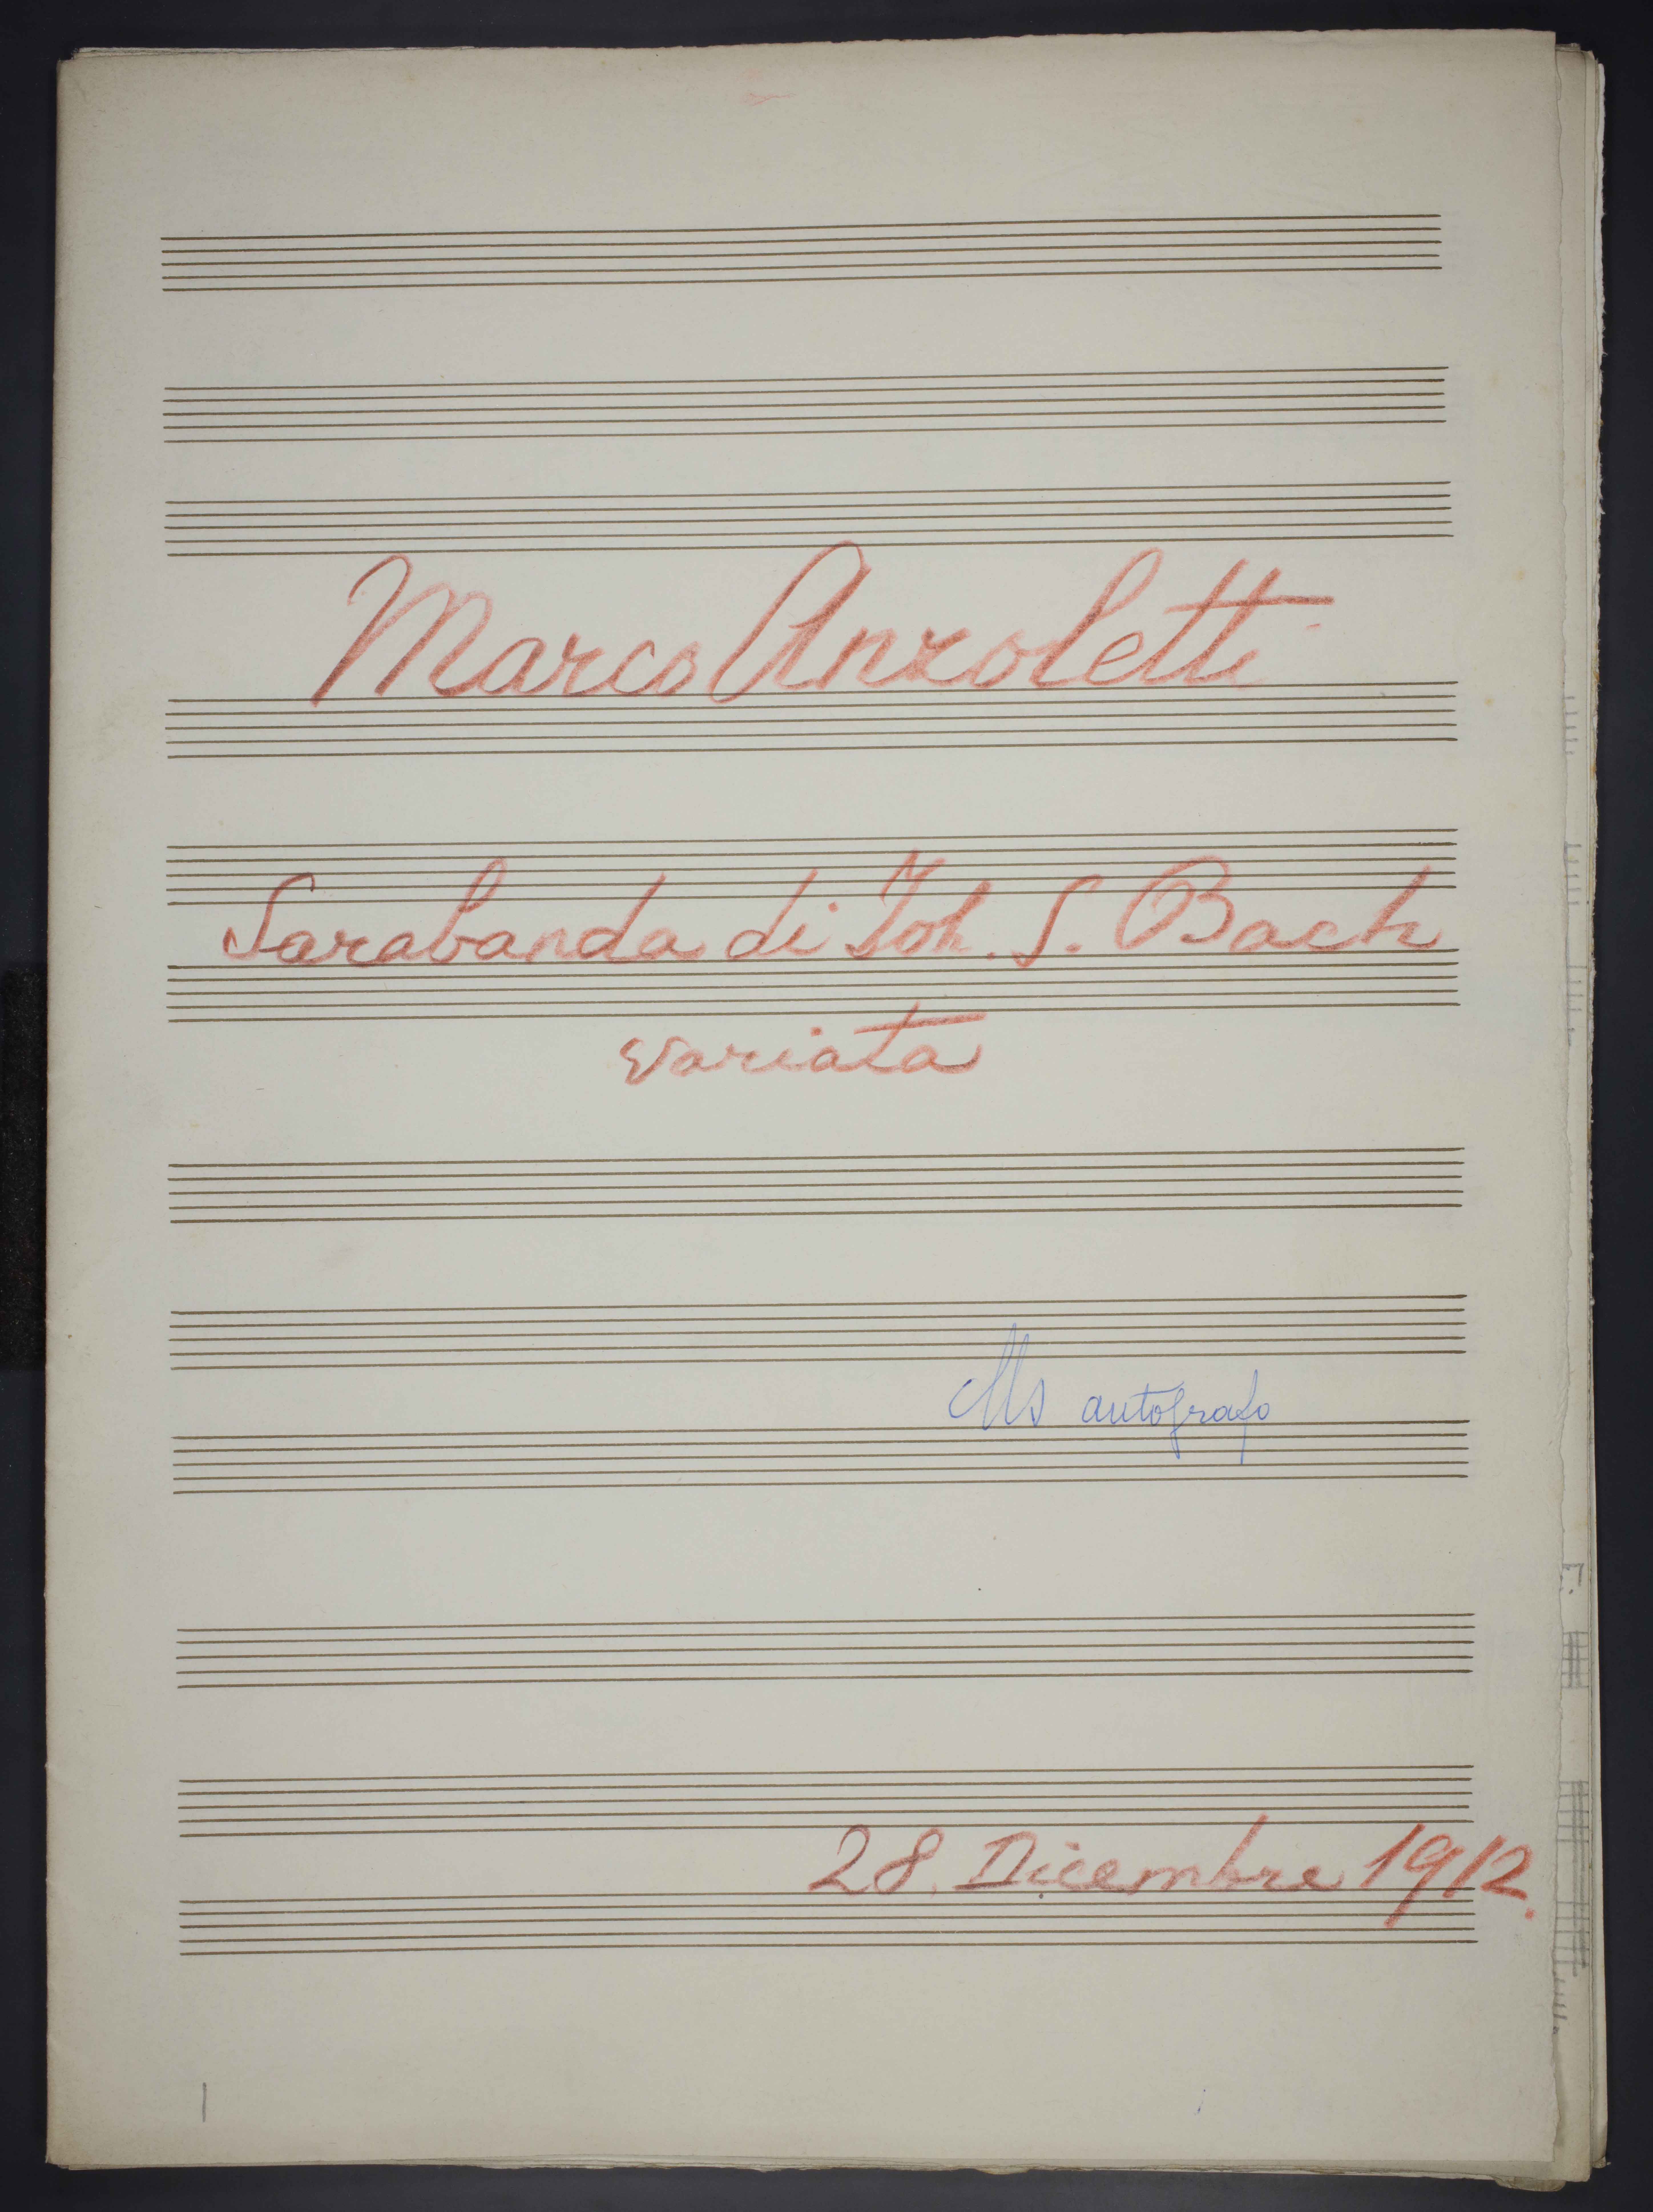 Marco Anzoletti
Sarabanda di Joh. S. Bach
variata
Ms autografo
28. Dicembre 1912.